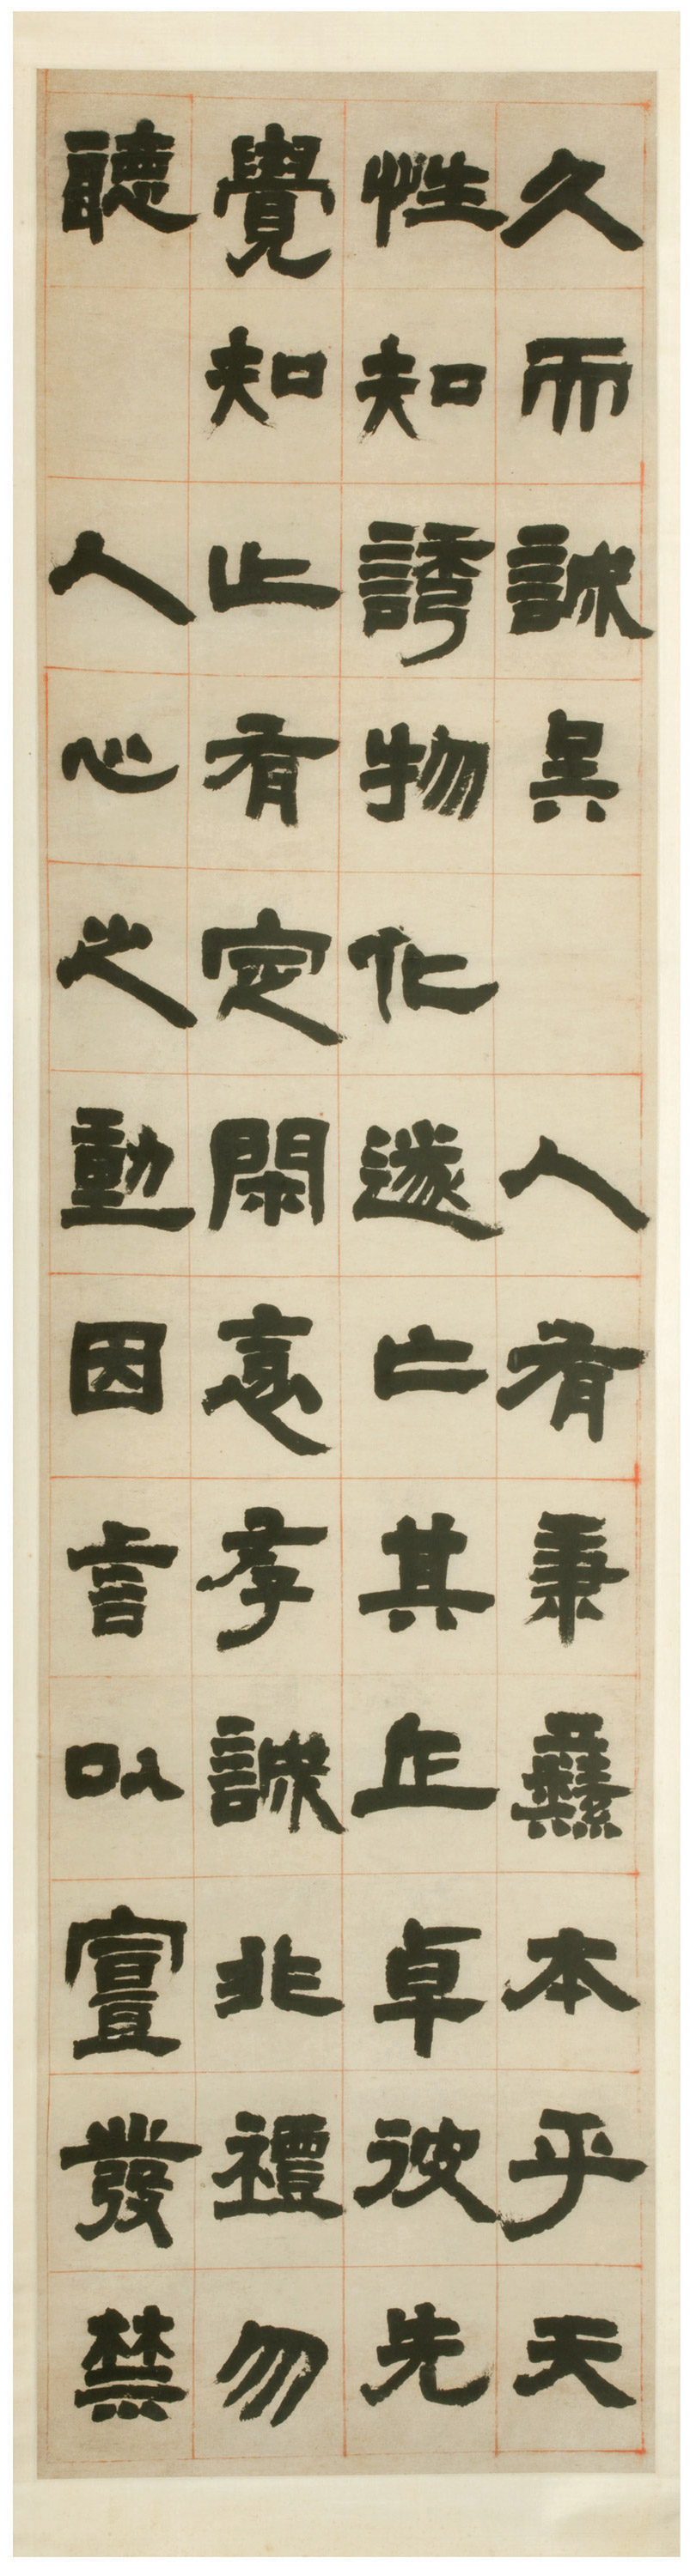 久而誠矣 人有秉彝本乎天
性知誘物化遂亡其正卓彼先
覺知止有定閑衺存誠非禮勿
聽 人心之動因言以宣發禁